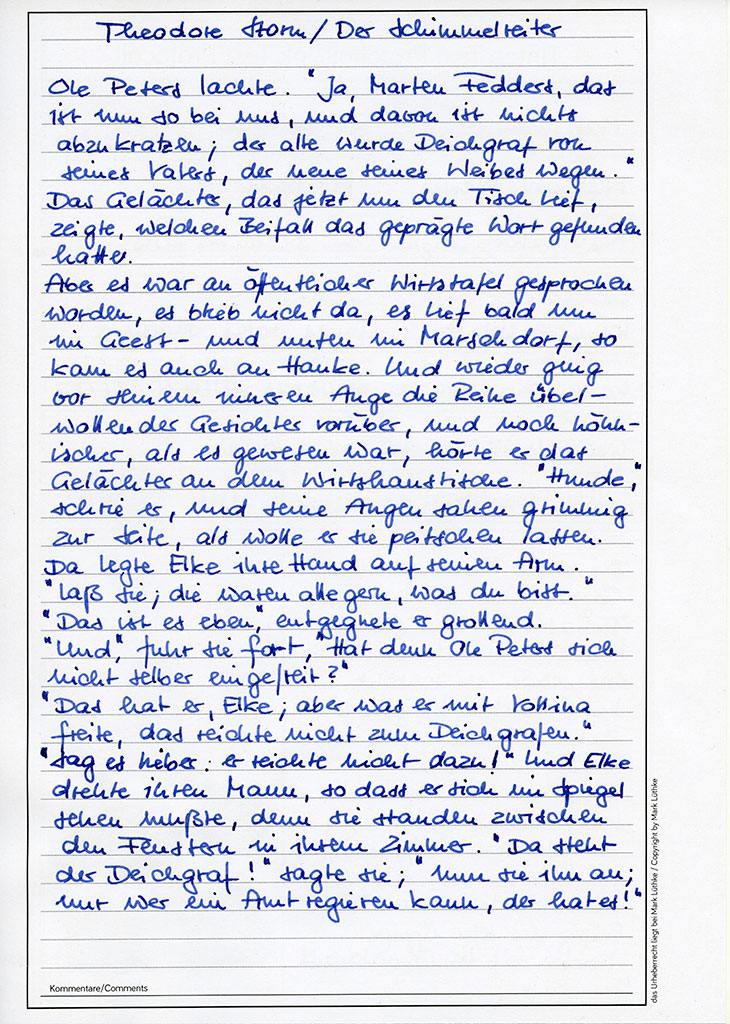 Theodore Storm / Der Schimmelreiter
Ole Peters lachte. "Ja, Marten Fedders, das
ist nun so bei uns, und davon ist nichts
abzukratzen; der alte wurde Deichgraf von
seines Vaters, der neue seines Weibes wegen."
Das Gelächter, das jetzt um den Tisch lief,
zeigte, welchen Beifall das geprägte Wort gefunden
hatte.
Aber es war an öffentlicher Wirtstafel gesprochen
worden, es blieb nicht da, es lief bald um
im Geest- und unten im Marschdorf, so
kam es auch an Hauke. Und wieder ging
vor seinem inneren Auge die Reihe übel-
wollender Gesichter vorüber, und noch höhn-
ischer, als es gewesen war, hörte er das
Gelächter an dem Wirtshaustische. "Hunde,"
schrie er, und seine Augen sahen grimmig
zur Seite, als wolle er sie peitschen lassen.
Da legte Elke ihre Hand auf seinen Arm.
"Laß sie; die wären alle gern, was du bist."
"Das ist es eben," entgegnete er grollend.
"Und," fuhr sie fort, "Hat denn Ole Peters sich
nicht selber eingefreit?"
"Das hat er, Elke; aber was er mit Vollina
freite, das reichte nicht zum Deichgrafen."
"Sag es lieber: er reichte nicht dazu!" Und Elke
drehte ihren Mann, so dass er sich im Spiegel
sehen mußte, denn sie standen zwischen
den Fenstern in ihrem Zimmer. "Da steht
der Deichgraf!" sagte sie; "nun sieh ihn an;
nur wer ein Amt regieren kann, der hat es!"
Kommentare/Comments
das Urheberrecht liegt bei Mark Lüthke / Copyright by Mark Lüthke